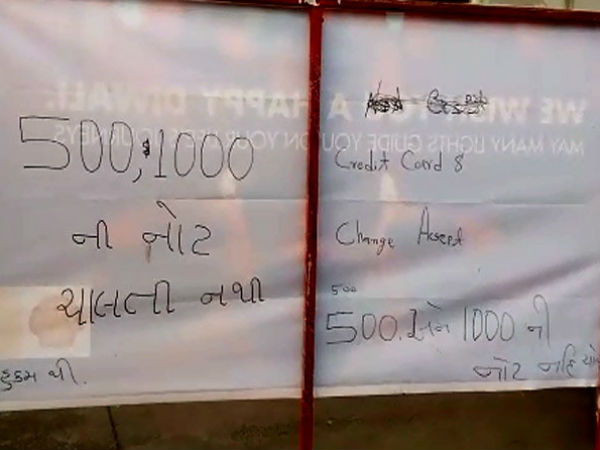 500, 1000
ની નોટ
ચાલતી નથી
હુકમ થી.
WE WISH YOU A HAPPY DIWALI.
MAY MANY LIGHTS GUIDE YOU ON YOUR LIFE'S JOURNEYS
Credit Card &
Change Accept
500
500. અને 1000 ની
નોટ નહિ